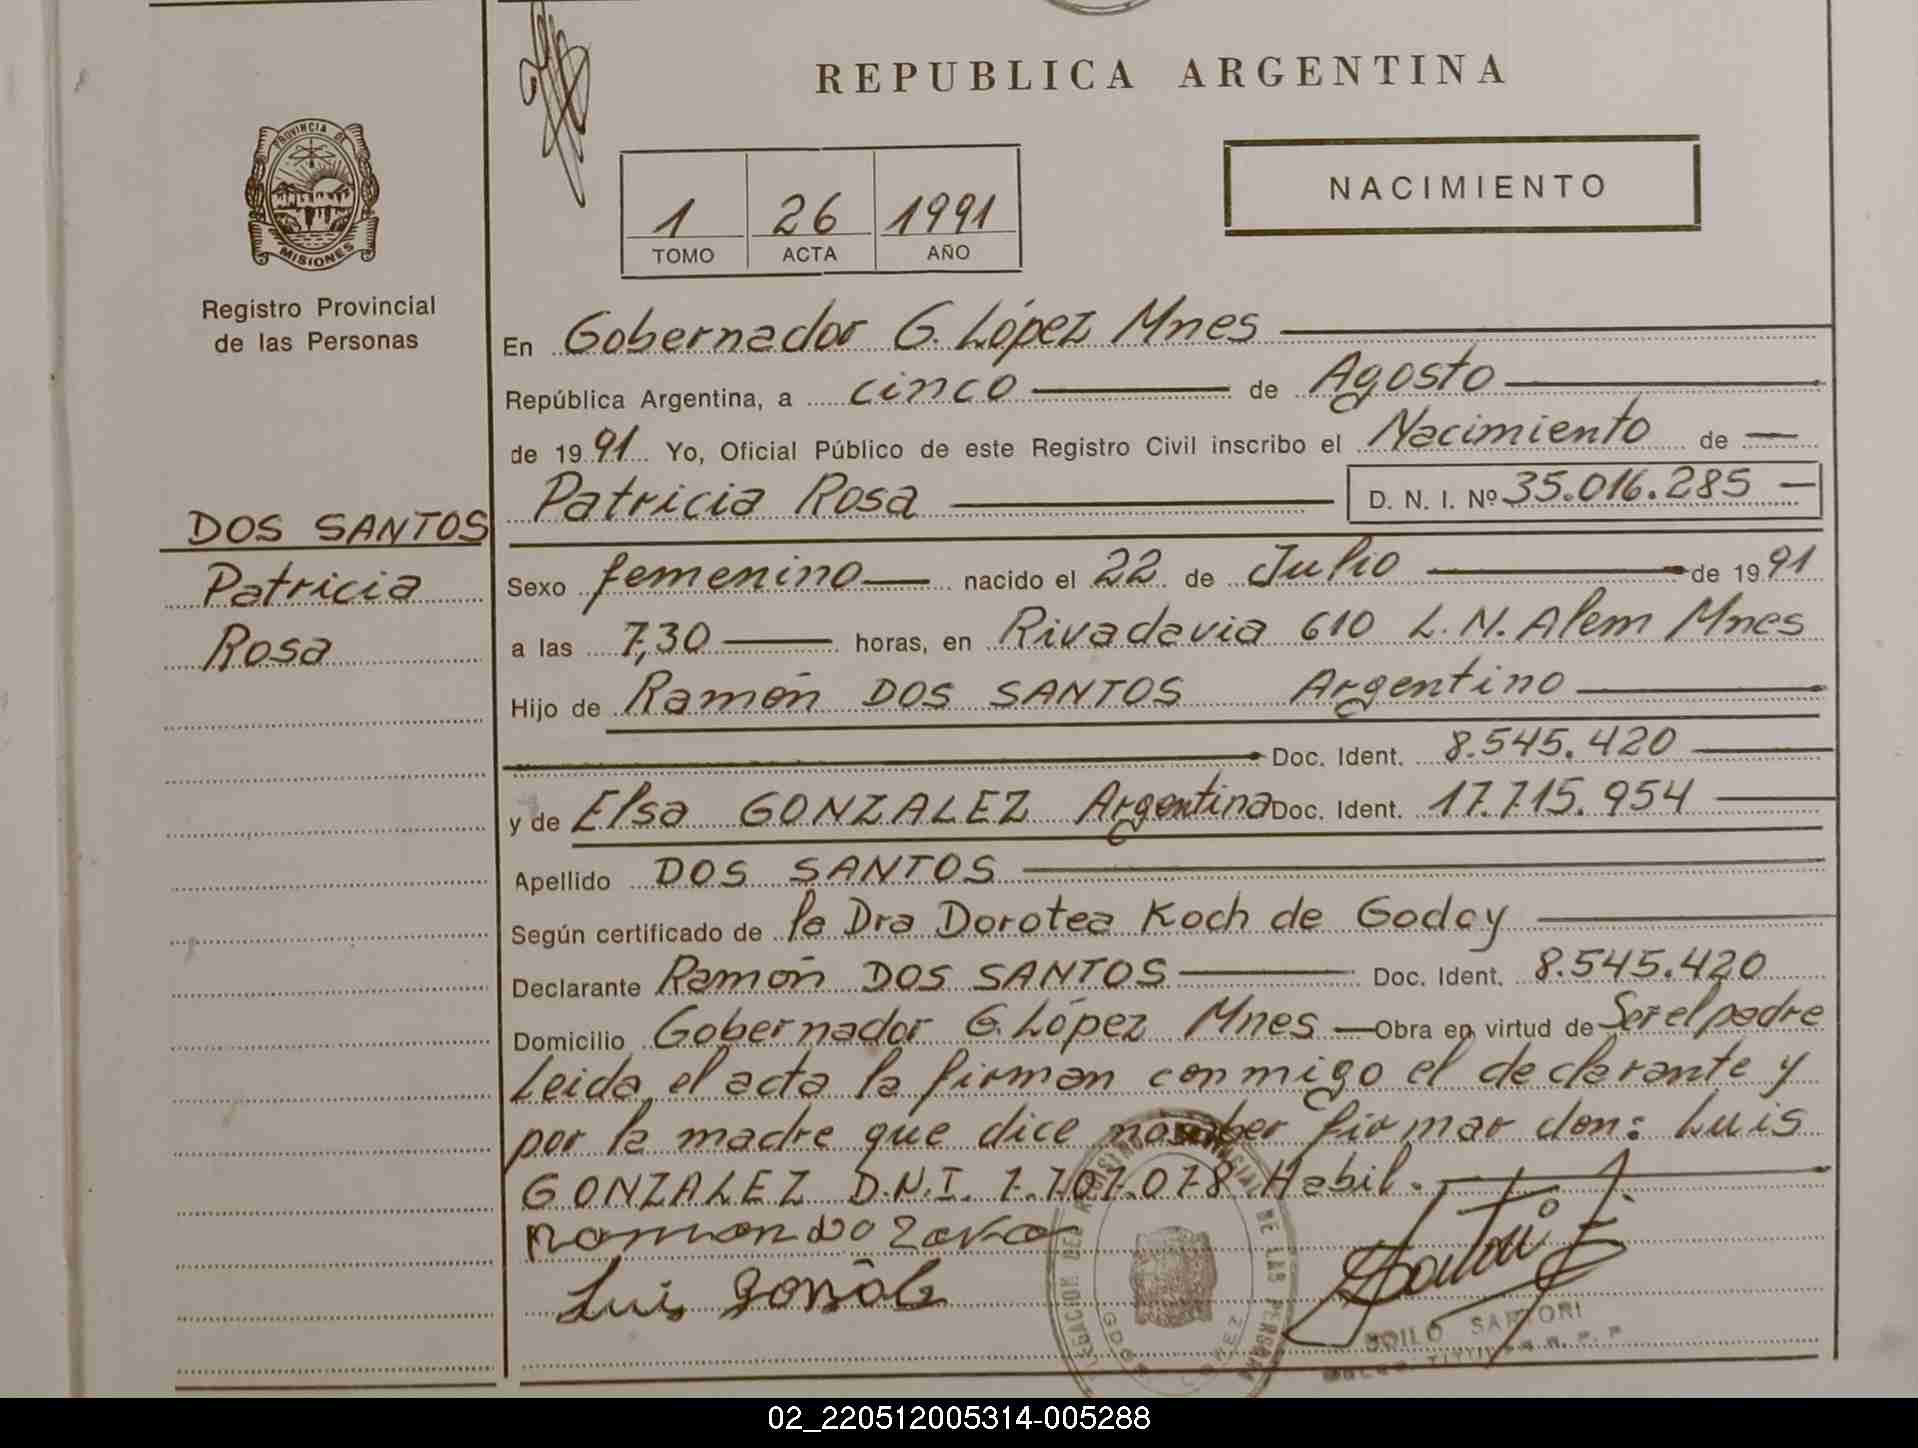 REPUBLICA ARGENTINA
PROVINCIA DE
MISIONES
Registro Provincial
de las Personas
DOS SANTOS
Patricia
Rosa
1 26 1991
TOMO ACTA AÑO
NACIMIENTO
En Gobernador G. López Mnes
República Argentina, a cinco de Agosto
de 1991 Yo, Oficial Público de este Registro Civil inscribo el Nacimiento de
Patricia Rosa D. N. I. Nº 35.016.285
Sexo femenino nacido el 22 de Julio de 1991
a las 7,30 horas, en Rivadavia 610 L.N. Alem Mnes
Hijo de Ramón DOS SANTOS Argentino
Doc. Ident. 8.545.420
y de Elsa GONZALEZ Argentina Doc. Ident. 17.715.954
Apellido DOS SANTOS
Según certificado de la Dra Dorotea Koch de Godoy
Declarante Ramón DOS SANTOS Doc. Ident. 8.545.420
Domicilio Gobernador G. López Mnes Obra en virtud de Ser el padre
Leida el acta la firman conmigo el declarante y
por la madre que dice no saber firmar don: Luis
GONZALEZ D.N.I. 7.707.078 Habil.
Luis
SARTORI
02_220512005314-005288